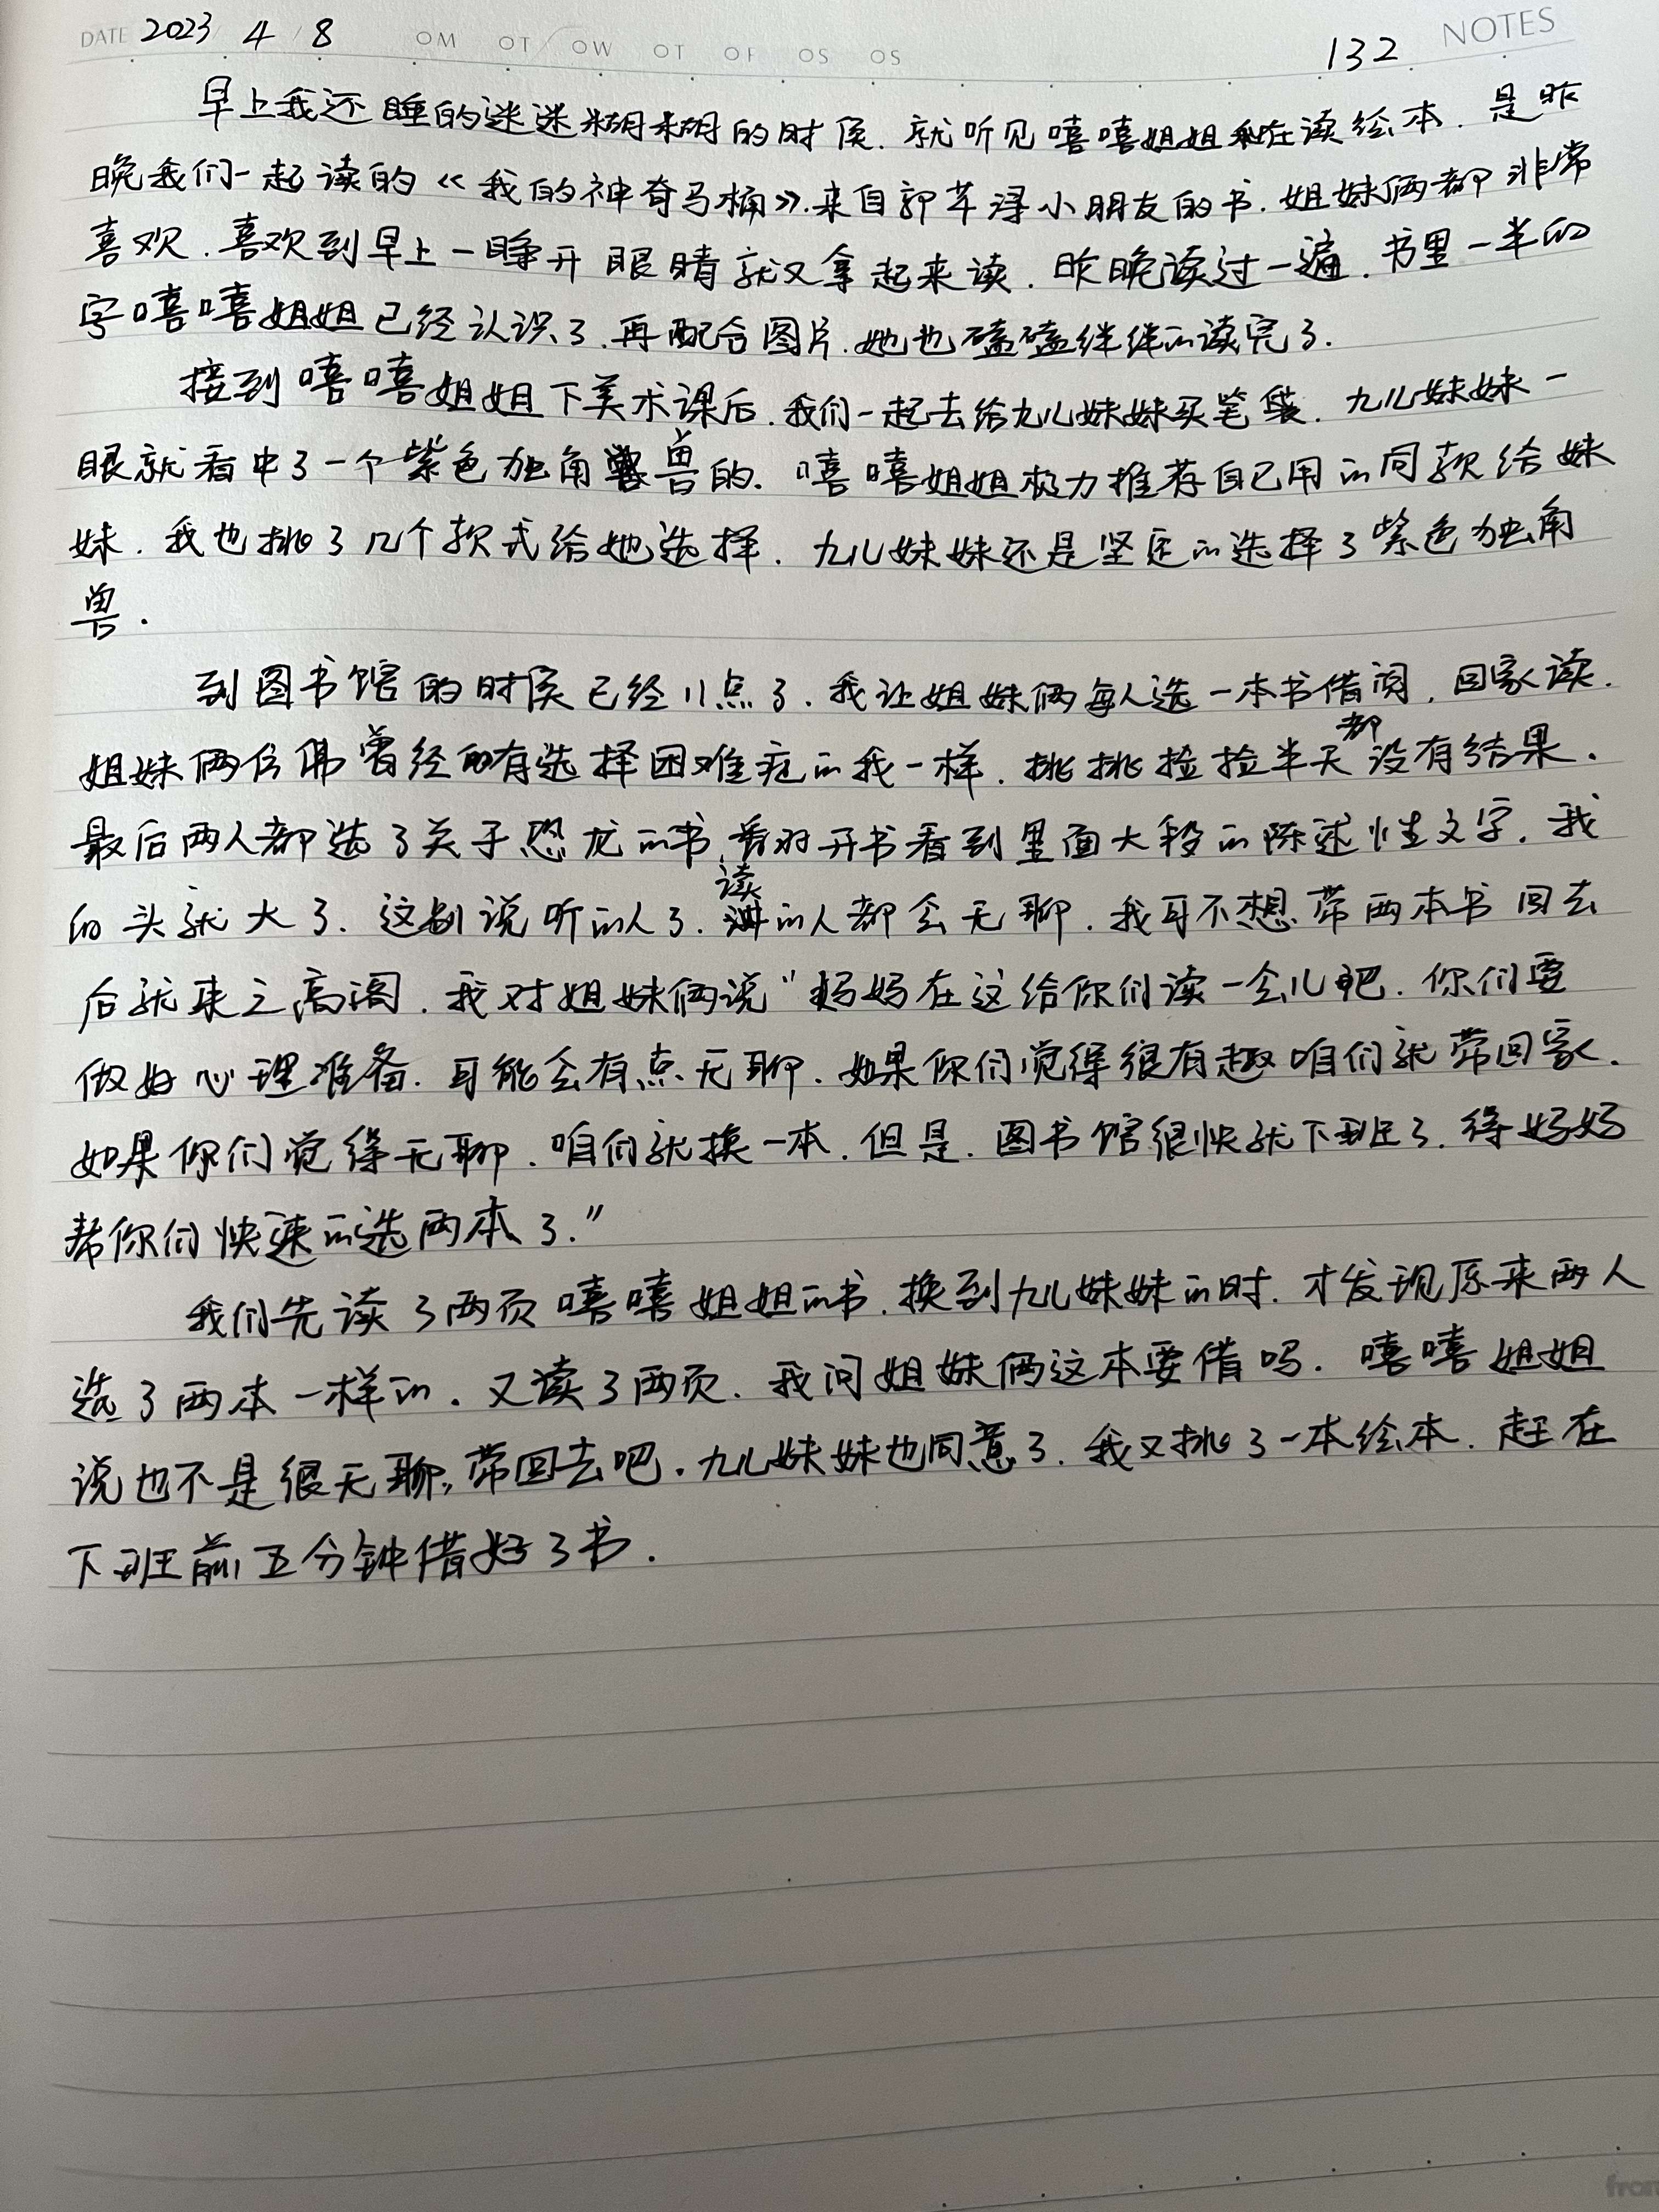 DATE 2023 / 4 / 8 OM OT OW OT OF OS OS 132 NOTES
早上我还睡的迷迷糊糊的时候.就听见嘻嘻姐姐在读绘本.是昨
晚我们一起读的《我的神奇马桶》.来自郭芊浔小朋友的书.姐妹俩都非常
喜欢.喜欢到早上一睁开眼睛就又拿起来读.昨晚读过一遍.书里一半的
字嘻嘻姐姐已经认识了.再配合图片.她也磕磕绊绊的读完了.
接到嘻嘻姐姐下美术课后.我们一起去给九儿妹妹买笔袋.九儿妹妹一
眼就看中了一个紫色独角兽的.嘻嘻姐姐极力推荐自己用的同款给妹
妹.我也挑了几个款式给她选择.九儿妹妹还是坚定的选择了紫色独角
兽.
到图书馆的时候已经11点了.我让姐妹俩每人选一本书借阅.回家读.
姐妹俩仿佛曾经有选择困难症的我一样.挑挑捡捡半天都没有结果.
最后两人都选了关于恐龙的书.翻开书看到里面大段的陈述性文字.我
的头就大了.这别说听的人了.读的人都会无聊.我可不想带两本书回去
后就束之高阁.我对姐妹俩说"妈妈在这给你们读一会儿吧.你们要
做好心理准备.可能会有点无聊.如果你们觉得很有趣咱们就带回家.
如果你们觉得无聊.咱们就换一本.但是.图书馆很快就下班了.得妈妈
帮你们快速的选两本了."
我们先读了两页嘻嘻姐姐的书.换到九儿妹妹的时.才发现原来两人
选了两本一样的.又读了两页.我问姐妹俩这本要借吗.嘻嘻姐姐
说也不是很无聊,带回去吧.九儿妹妹也同意了.我又挑了一本绘本.赶在
下班前五分钟借好了书.